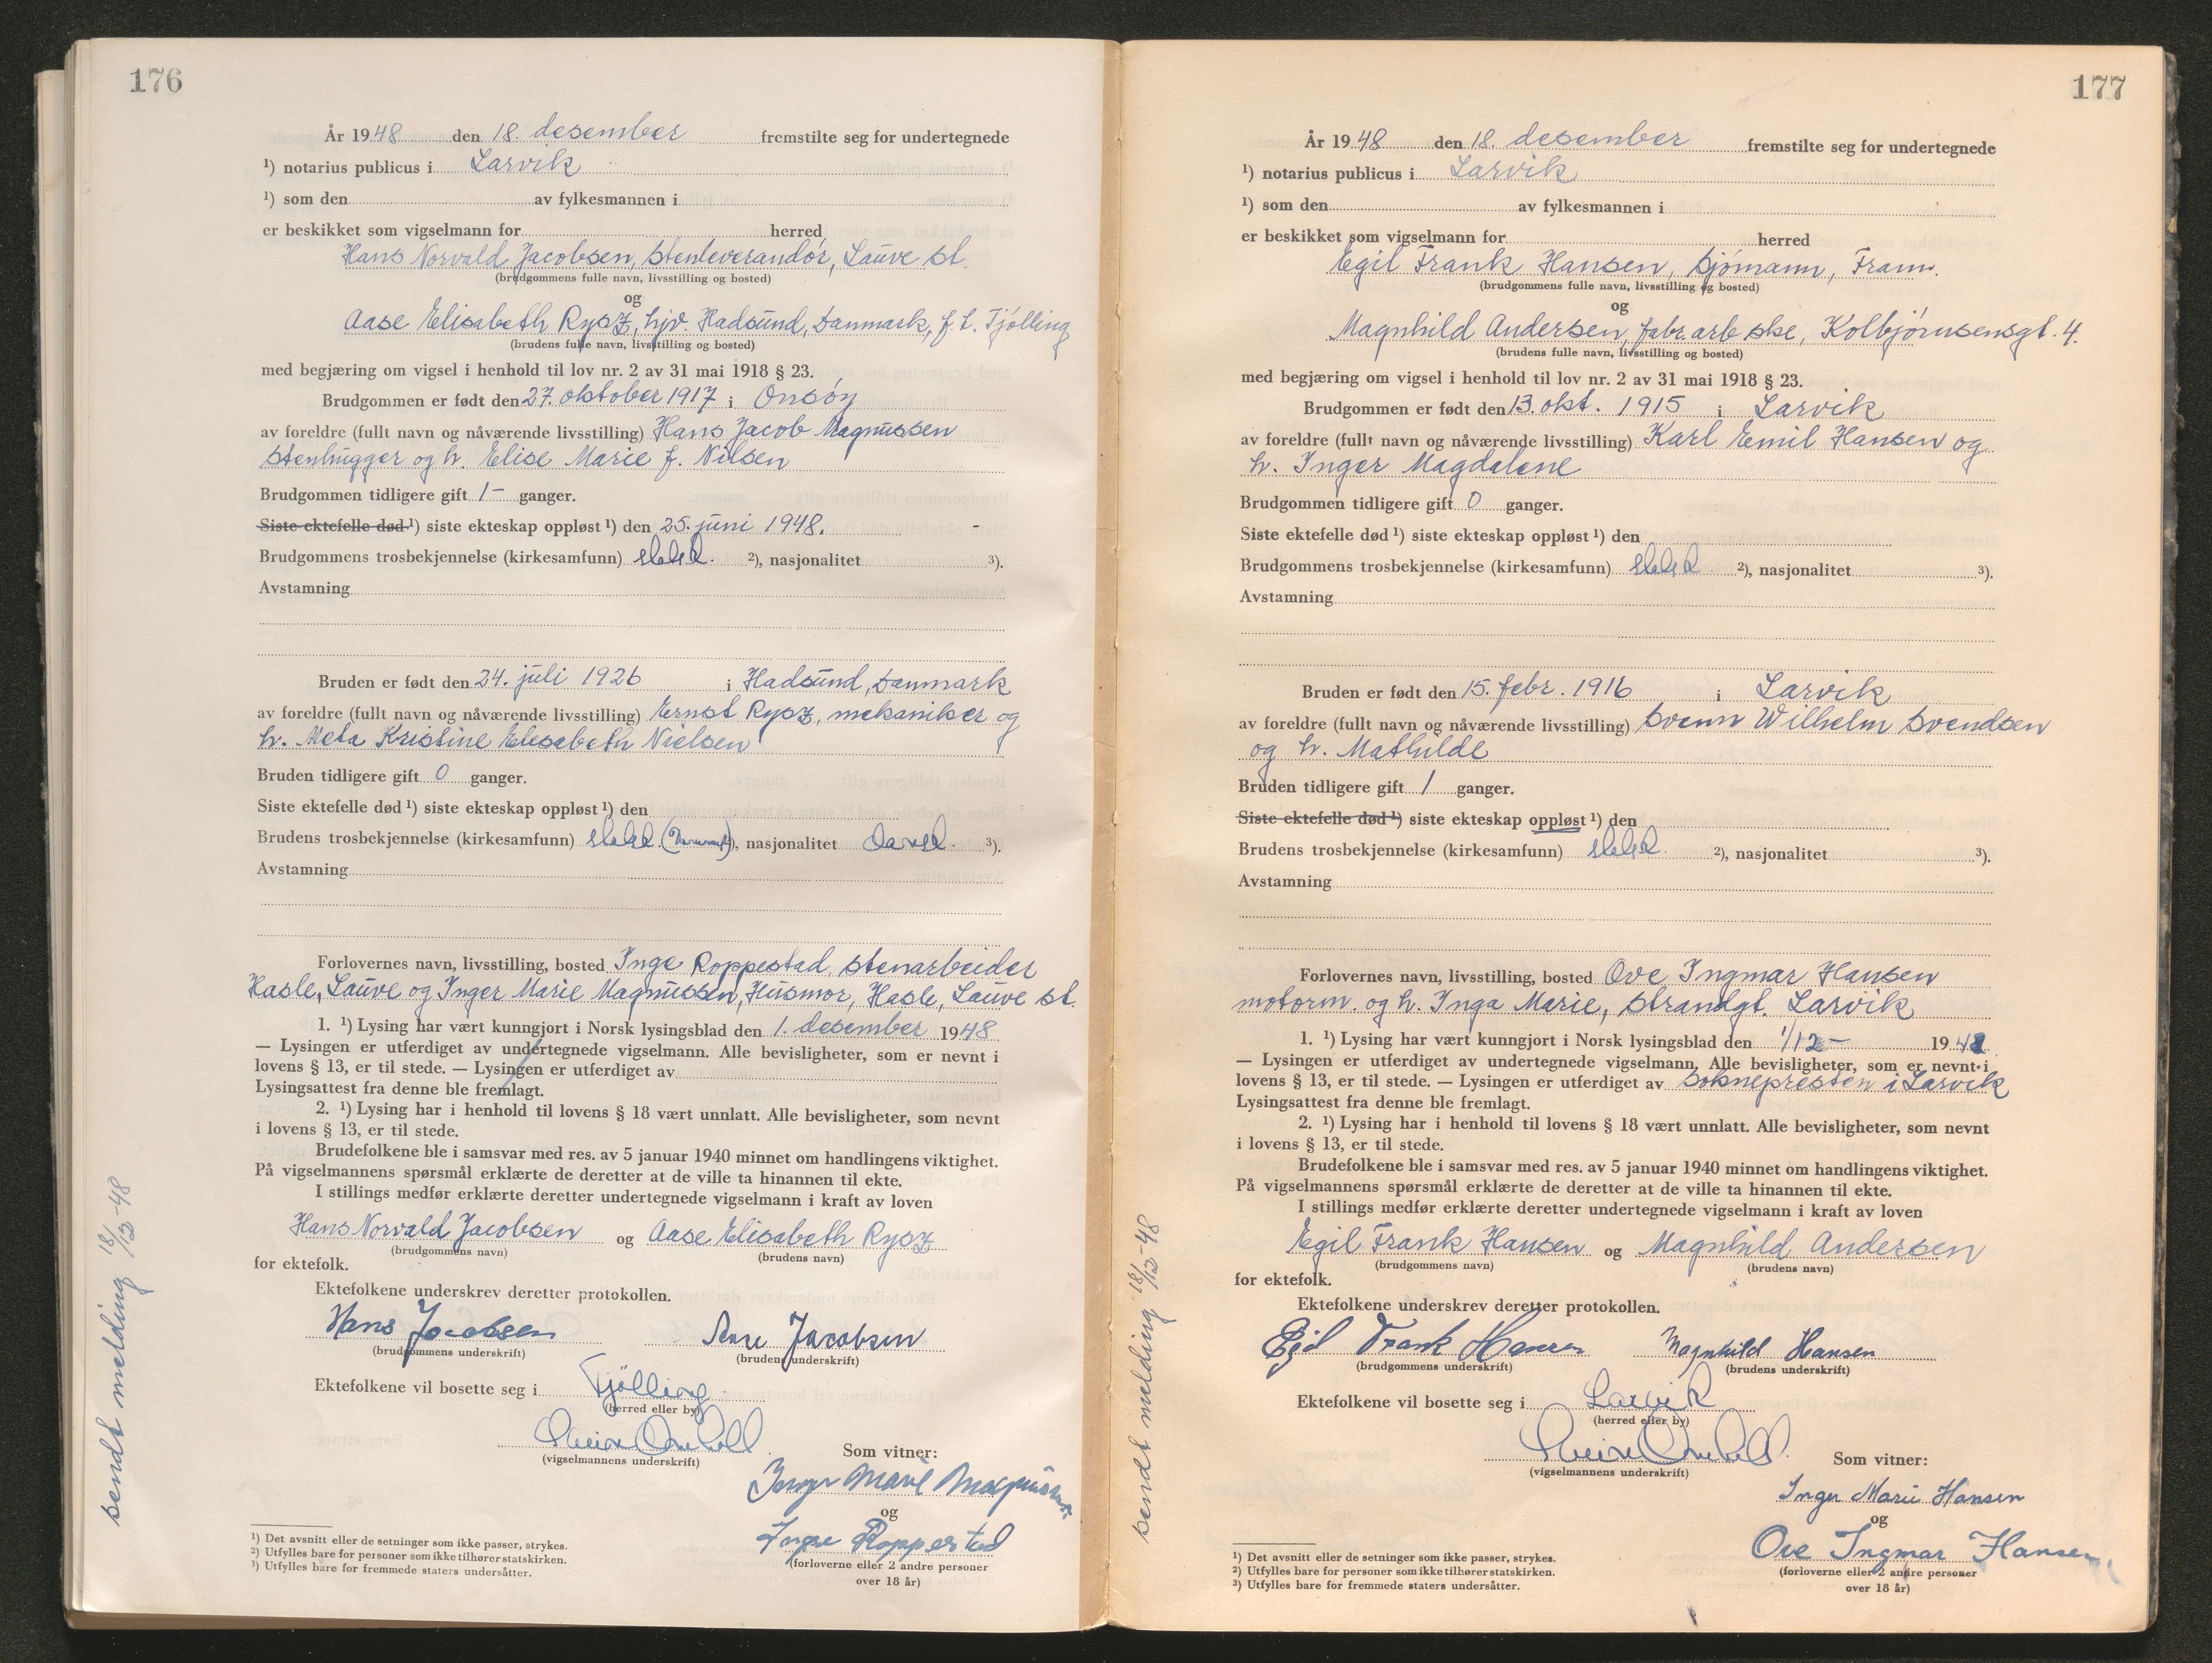 176
År 1948 den 18. desember fremstilte seg for undertegnede
¹) notarius publicus i Larvik
¹) som den av fylkesmannen i
er beskikket som vigselmann for herred
Hans Norvald Jacobsen, stenleverandør, Lauve st.
(brudgommens fulle navn, livsstilling og bosted)
og
Aase Elisabeth Rysz, hjv. Hadsund, Danmark, f. t. Tjølling
(brudens fulle navn, livsstilling og bosted)
med begjæring om vigsel i henhold til lov nr. 2 av 31 mai 1918 § 23.
Brudgommen er født den 27. oktober 1917 i Onsøy
av foreldre (fullt navn og nåværende livsstilling) Hans Jacob Magnussen
stenhugger og h. Elise Marie f. Nilsen
Brudgommen tidligere gift 1- ganger.
Siste ektefelle død ¹) siste ekteskap oppløst ¹) den 25. juni 1948.
Brudgommens trosbekjennelse (kirkesamfunn) statsk. ²), nasjonalitet ³).
Avstamning
Bruden er født den 24. juli 1926 i Hadsund, Danmark
av foreldre (fullt navn og nåværende livsstilling) Ernst Rysz, mekaniker og
h. Meta Kristine Elisabeth Nielsen
Bruden tidligere gift 0 ganger.
Siste ektefelle død ¹) siste ekteskap oppløst ¹) den
Brudens trosbekjennelse (kirkesamfunn) statsk. (Danmark), nasjonalitet dansk. ³).
Avstamning
Forlovernes navn, livsstilling, bosted Inge Roppestad, stenarbeider
Hasle, Lauve og Inger Marie Magnussen, Husmor, Hasle, Lauve st.
1. ¹) Lysing har vært kunngjort i Norsk lysingsblad den 1. desember 1948
— Lysingen er utferdiget av undertegnede vigselmann. Alle bevisligheter, som er nevnt i
lovens § 13, er til stede. — Lysingen er utferdiget av
Lysingsattest fra denne ble fremlagt.
2. ¹) Lysing har i henhold til lovens § 18 vært unnlatt. Alle bevisligheter, som nevnt
i lovens § 13, er til stede.
Brudefolkene ble i samsvar med res. av 5 januar 1940 minnet om handlingens viktighet.
På vigselmannens spørsmål erklærte de deretter at de ville ta hinannen til ekte.
I stillings medfør erklærte deretter undertegnede vigselmann i kraft av loven
Hans Norvald Jacobsen og Aase Elisabeth Rysz
(brudgommens navn) (brudens navn)
for ektefolk.
Ektefolkene underskrev deretter protokollen.
Hans Jacobsen Aase Jacobsen
(brudgommens underskrift) (brudens underskrift)
Ektefolkene vil bosette seg i Tjølling
(herred eller by)
(vigselmannens underskrift)
Som vitner:
Inger Marie Magnussen
og
Inge Roppestad
(forloverne eller 2 andre personer
over 18 år)
¹) Det avsnitt eller de setninger som ikke passer, strykes.
²) Utfylles bare for personer som ikke tilhører statskirken.
³) Utfylles bare for fremmede staters undersåtter.
sendt melding 18/12-48
177
År 1948 den 18. desember fremstilte seg for undertegnede
¹) notarius publicus i Larvik
¹) som den av fylkesmannen i
er beskikket som vigselmann for herred
Egil Frank Hansen, sjømann, Fram.
(brudgommens fulle navn, livsstilling og bosted)
og
Magnhild Andersen, fabr.arb ske, Kolbjørnsensgt. 4.
(brudens fulle navn, livsstilling og bosted)
med begjæring om vigsel i henhold til lov nr. 2 av 31 mai 1918 § 23.
Brudgommen er født den 13. okt. 1915 i Larvik
av foreldre (fullt navn og nåværende livsstilling) Karl Emil Hansen og
h. Inger Magdalene
Brudgommen tidligere gift 0 ganger.
Siste ektefelle død ¹) siste ekteskap oppløst ¹) den
Brudgommens trosbekjennelse (kirkesamfunn) statsk. ²), nasjonalitet ³).
Avstamning
Bruden er født den 15. febr. 1916 i Larvik
av foreldre (fullt navn og nåværende livsstilling) Svenn Wilhelm Svendsen
og h. Mathilde
Bruden tidligere gift 1 ganger.
Siste ektefelle død ¹) siste ekteskap oppløst ¹) den
Brudens trosbekjennelse (kirkesamfunn) statsk. ²), nasjonalitet ³).
Avstamning
Forlovernes navn, livsstilling, bosted Ove Ingmar Hansen
motorm. og h. Inga Marie, Strandgt. Larvik
1. ¹) Lysing har vært kunngjort i Norsk lysingsblad den 1/12- 1948
— Lysingen er utferdiget av undertegnede vigselmann. Alle bevisligheter, som er nevnt i
lovens § 13, er til stede. — Lysingen er utferdiget av soknepresten i Larvik
Lysingsattest fra denne ble fremlagt.
2. ¹) Lysing har i henhold til lovens § 18 vært unnlatt. Alle bevisligheter, som nevnt
i lovens § 13, er til stede.
Brudefolkene ble i samsvar med res. av 5 januar 1940 minnet om handlingens viktighet.
På vigselmannens spørsmål erklærte de deretter at de ville ta hinannen til ekte.
I stillings medfør erklærte deretter undertegnede vigselmann i kraft av loven
Egil Frank Hansen og Magnhild Andersen
(brudgommens navn) (brudens navn)
for ektefolk.
Ektefolkene underskrev deretter protokollen.
Egil Frank Hansen Magnhild Hansen
(brudgommens underskrift) (brudens underskrift)
Ektefolkene vil bosette seg i Larvik
(herred eller by)
(vigselmannens underskrift)
Som vitner:
Inger Marie Hansen
og
Ove Ingmar Hansen
(forloverne eller 2 andre personer
over 18 år)
¹) Det avsnitt eller de setninger som ikke passer, strykes.
²) Utfylles bare for personer som ikke tilhører statskirken.
³) Utfylles bare for fremmede staters undersåtter.
sendt melding 18/12-48